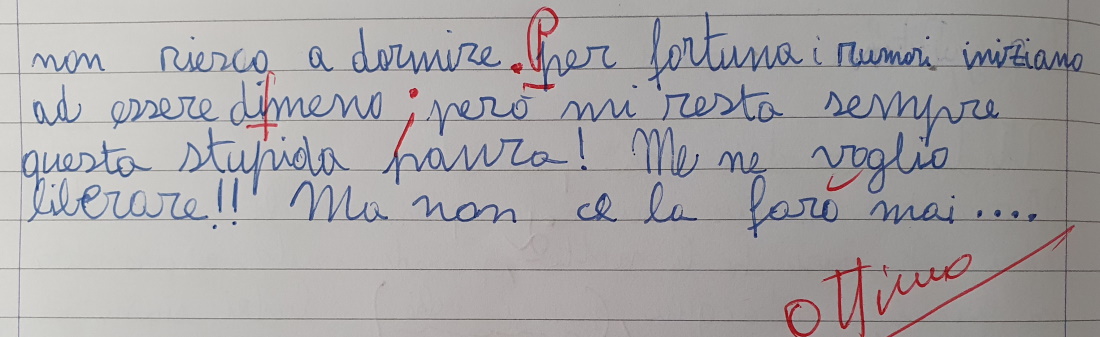 non riesco a dormire. Per fortuna i rumori iniziano
ad essere di meno; però mi resta sempre
questa stupida paura! Me ne voglio
liberare!! Ma non ce la farò mai....
Ottimo